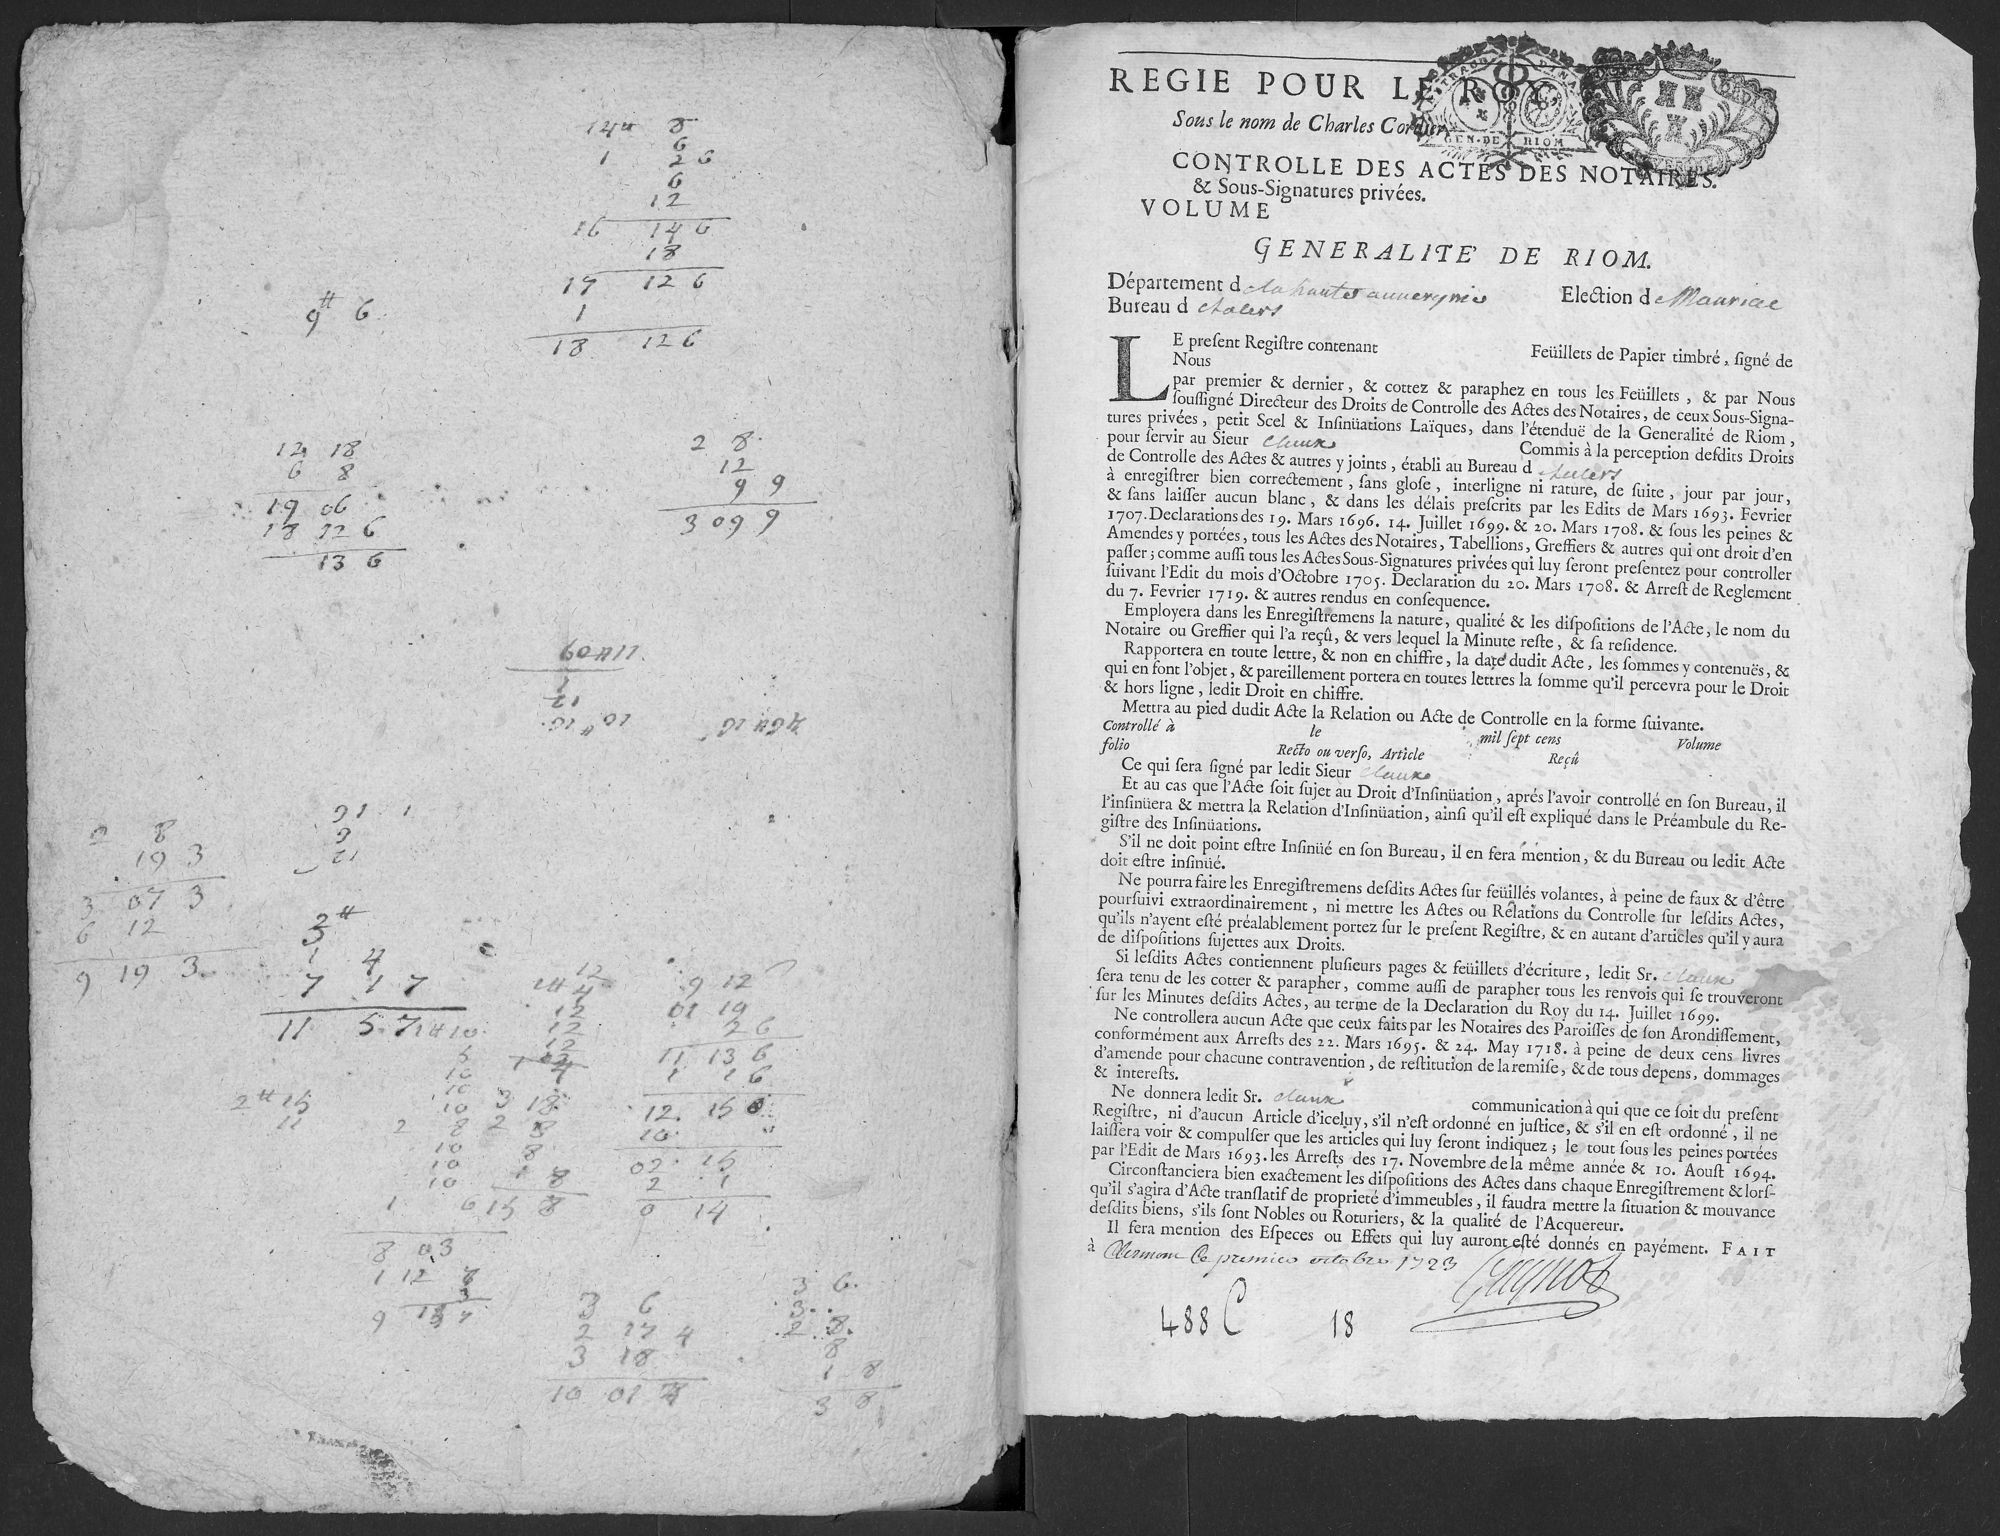 14# 8
6
1 2 6
6
12
16 14 6
18
17 12 6
1
18 12 6
9# 6
12 18
6 8
19 06
18 12 6
13 6
2 8
12
9 9
3 09 9
8
19 3
3 07 3
6 12
9 19 3
3#
1 4
7 1 7
11 5 7
2# 15
11
9 12
01 19
2 6
11 13 6
1 1 6
12 15 0
10
02 15
2 1
0 14
3 18
2 8
8
1 8
6 15 8
8 03
1 12
3 6
2 17 4
3 18
10 01 4
3 6
3
2 8
8
1 8
3 8
REGIE POUR LE ROY,
Sous le nom de Charles Cordier
GEN·DE RIOM
CONTROLLE DES ACTES DES NOTAIRES.
& Sous-Signatures privées.
VOLUME
GENERALITE' DE RIOM.
Département de la haute auvergnie Election de Mauriac
Bureau d
LE preſent Regiſtre contenant Feüillets de Papier timbré, ſigné de
Nous
par premier & dernier, & cottez & paraphez en tous les Feüillets, & par Nous
ſouſſigné Directeur des Droits de Controlle des Actes des Notaires, de ceux Sous-Signa-
tures privées, petit Scel & Inſinüations Laïques, dans l'étenduë de la Generalité de Riom,
pour ſervir au Sieur claux Commis à la perception deſdits Droits
de Controlle des Actes & autres y joints, établi au Bureau d
à enregiſtrer bien correctement, ſans gloſe, interligne ni rature, de ſuite, jour par jour,
& ſans laiſſer aucun blanc, & dans les délais preſcrits par les Edits de Mars 1693. Fevrier
1707. Declarations des 19. Mars 1696. 14. Juillet 1699. & 20. Mars 1708. & ſous les peines &
Amendes y portées, tous les Actes des Notaires, Tabellions, Greffiers & autres qui ont droit d'en
paſſer; comme auſſi tous les Actes Sous-Signatures privées qui luy ſeront preſentez pour controller
ſuivant l'Edit du mois d'Octobre 1705. Declaration du 20. Mars 1708. & Arreſt de Reglement
du 7. Fevrier 1719. & autres rendus en conſequence.
Employera dans les Enregiſtremens la nature, qualité & les diſpoſitions de l'Acte, le nom du
Notaire ou Greffier qui l'a reçû, & vers lequel la Minute reſte, & ſa reſidence.
Rapportera en toute lettre, & non en chiffre, la date dudit Acte, les ſommes y contenuës, &
qui en font l'objet, & pareillement portera en toutes lettres la ſomme qu'il percevra pour le Droit
& hors ligne, ledit Droit en chiffre.
Mettra au pied dudit Acte la Relation ou Acte de Controlle en la forme ſuivante.
Controllé à le mil ſept cens Volume
folio Recto ou verſo, Article Reçû
Ce qui ſera ſigné par ledit Sieur claux
Et au cas que l'Acte ſoit ſujet au Droit d'Inſinüation, aprés l'avoir controllé en ſon Bureau, il
l'inſinüera & mettra la Relation d'Inſinüation, ainſi qu'il eſt expliqué dans le Préambule du Re-
giſtre des Inſinüations.
S'il ne doit point eſtre Inſinüé en ſon Bureau, il en fera mention, & du Bureau ou ledit Acte
doit eſtre inſinüé.
Ne pourra faire les Enregiſtremens deſdits Actes ſur feüillés volantes, à peine de faux & d'être
pourſuivi extraordinairement, ni mettre les Actes ou Relations du Controlle ſur leſdits Actes,
qu'ils n'ayent eſté préalablement portez ſur le preſent Regiſtre, & en autant d'articles qu'il y aura
de diſpoſitions ſujettes aux Droits.
Si leſdits Actes contiennent pluſieurs pages & feüillets d'écriture, ledit Sr. claux
ſera tenu de les cotter & parapher, comme auſſi de parapher tous les renvois qui ſe trouveront
ſur les Minutes deſdits Actes, au terme de la Declaration du Roy du 14. Juillet 1699.
Ne controllera aucun Acte que ceux faits par les Notaires des Paroiſſes de ſon Arondiſſement,
conformément aux Arreſts des 22. Mars 1695. & 24. May 1718. à peine de deux cens livres
d'amende pour chacune contravention, de reſtitution de la remiſe, & de tous depens, dommages
& intereſts.
Ne donnera ledit Sr. claux communication à qui que ce ſoit du preſent
Regiſtre, ni d'aucun Article d'iceluy, s'il n'eſt ordonné en juſtice, & s'il en eſt ordonné, il ne
laiſſera voir & compulſer que les articles qui luy ſeront indiquez; le tout ſous les peines portées
par l'Edit de Mars 1693. les Arreſts des 17. Novembre de la même année & 10. Aouſt 1694.
Circonſtanciera bien exactement les diſpoſitions des Actes dans chaque Enregiſtrement & lorſ-
qu'il s'agira d'Acte tranſlatif de proprieté d'immeubles, il faudra mettre la ſituation & mouvance
deſdits biens, s'ils ſont Nobles ou Roturiers, & la qualité de l'Acquereur.
Il fera mention des Eſpeces ou Effets qui luy auront eſté donnés en payément. FAIT
à Clermont Ce premier octobre 1723
488 C 18